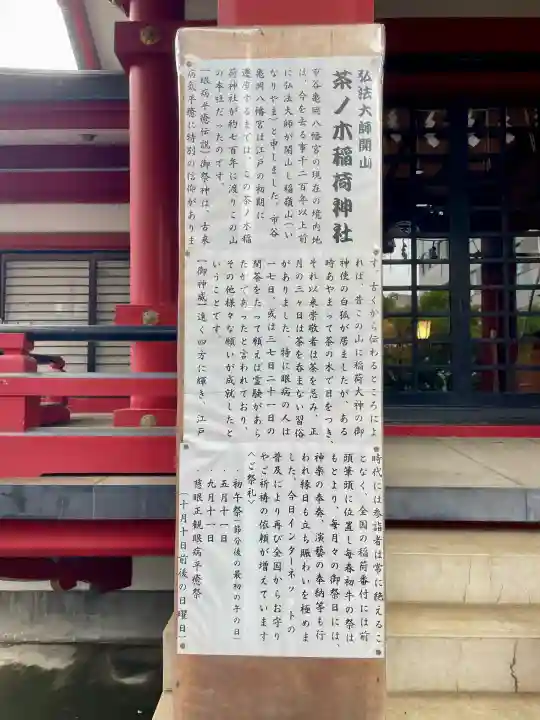 弘法大師開山
茶ノ木稲荷神社
市谷亀岡八幡宮の現在の境内地
は、今を去る事千二百年以上前
に弘法大師が開山し稲嶺山(い
なりやま)と申しました。市谷
亀岡八幡宮は江戸の初期に
遷座するまでは、この茶ノ木稲
荷神社が約七百年に渡りこの山
の本社だったのです。
【眼病平癒伝説】御祭神は、古来
病気平癒に特別の信仰がありま
す。古くから伝わるところによ
れば、昔この山に稲荷大神の御
神使の白狐が居ましたが、ある
時あやまって茶の木で目をつき、
それ以来崇敬者は茶を忌み、正
月の三ヶ日は茶を呑まない習俗
がありました。特に眼病の人は
一七日、或は三七日二十一日の
間茶をたって願えば霊験があら
たかであったと言われており、
その他様々な願いが成就したと
いうことです。
【御神威】遠く四方に輝き、江戸
時代には参詣者は常に絶えるこ
となく、全国の稲荷番付には前
頭筆頭に位置し毎春初午の祭は
もとより、毎月々の御祭日には、
神楽の奉奏、演藝の奉納等も行
われ縁日も立ち賑わいを極めま
した。今日インターネットの
普及により再び全国からお守り
やご祈祷の依頼が増えています
〈ご祭礼〉
・初午祭(節分後の最初の午の日)
・五月十一日
・九月十一日
・慈眼正観眼病平癒祭
(十月十日前後の日曜日)